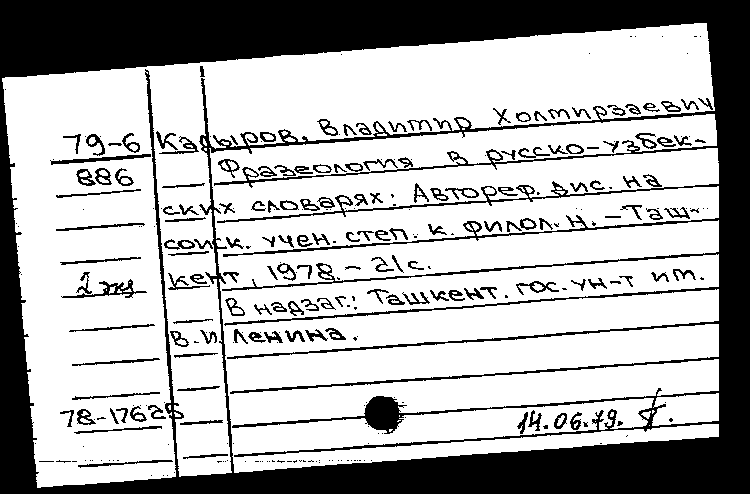 79-6 Кадыров, Владимир Холмирзаевич
886 Фразеология в русско-узбек-
ских словарях: Автореф. дис. на
соиск. учен. степ. к. филол. н. - Таш-
2 экз кент, 1978. - 21с.
В надзаг.: Ташкент. гос. ун-т им.
В.И. Ленина.
78-17625
14.06.79.